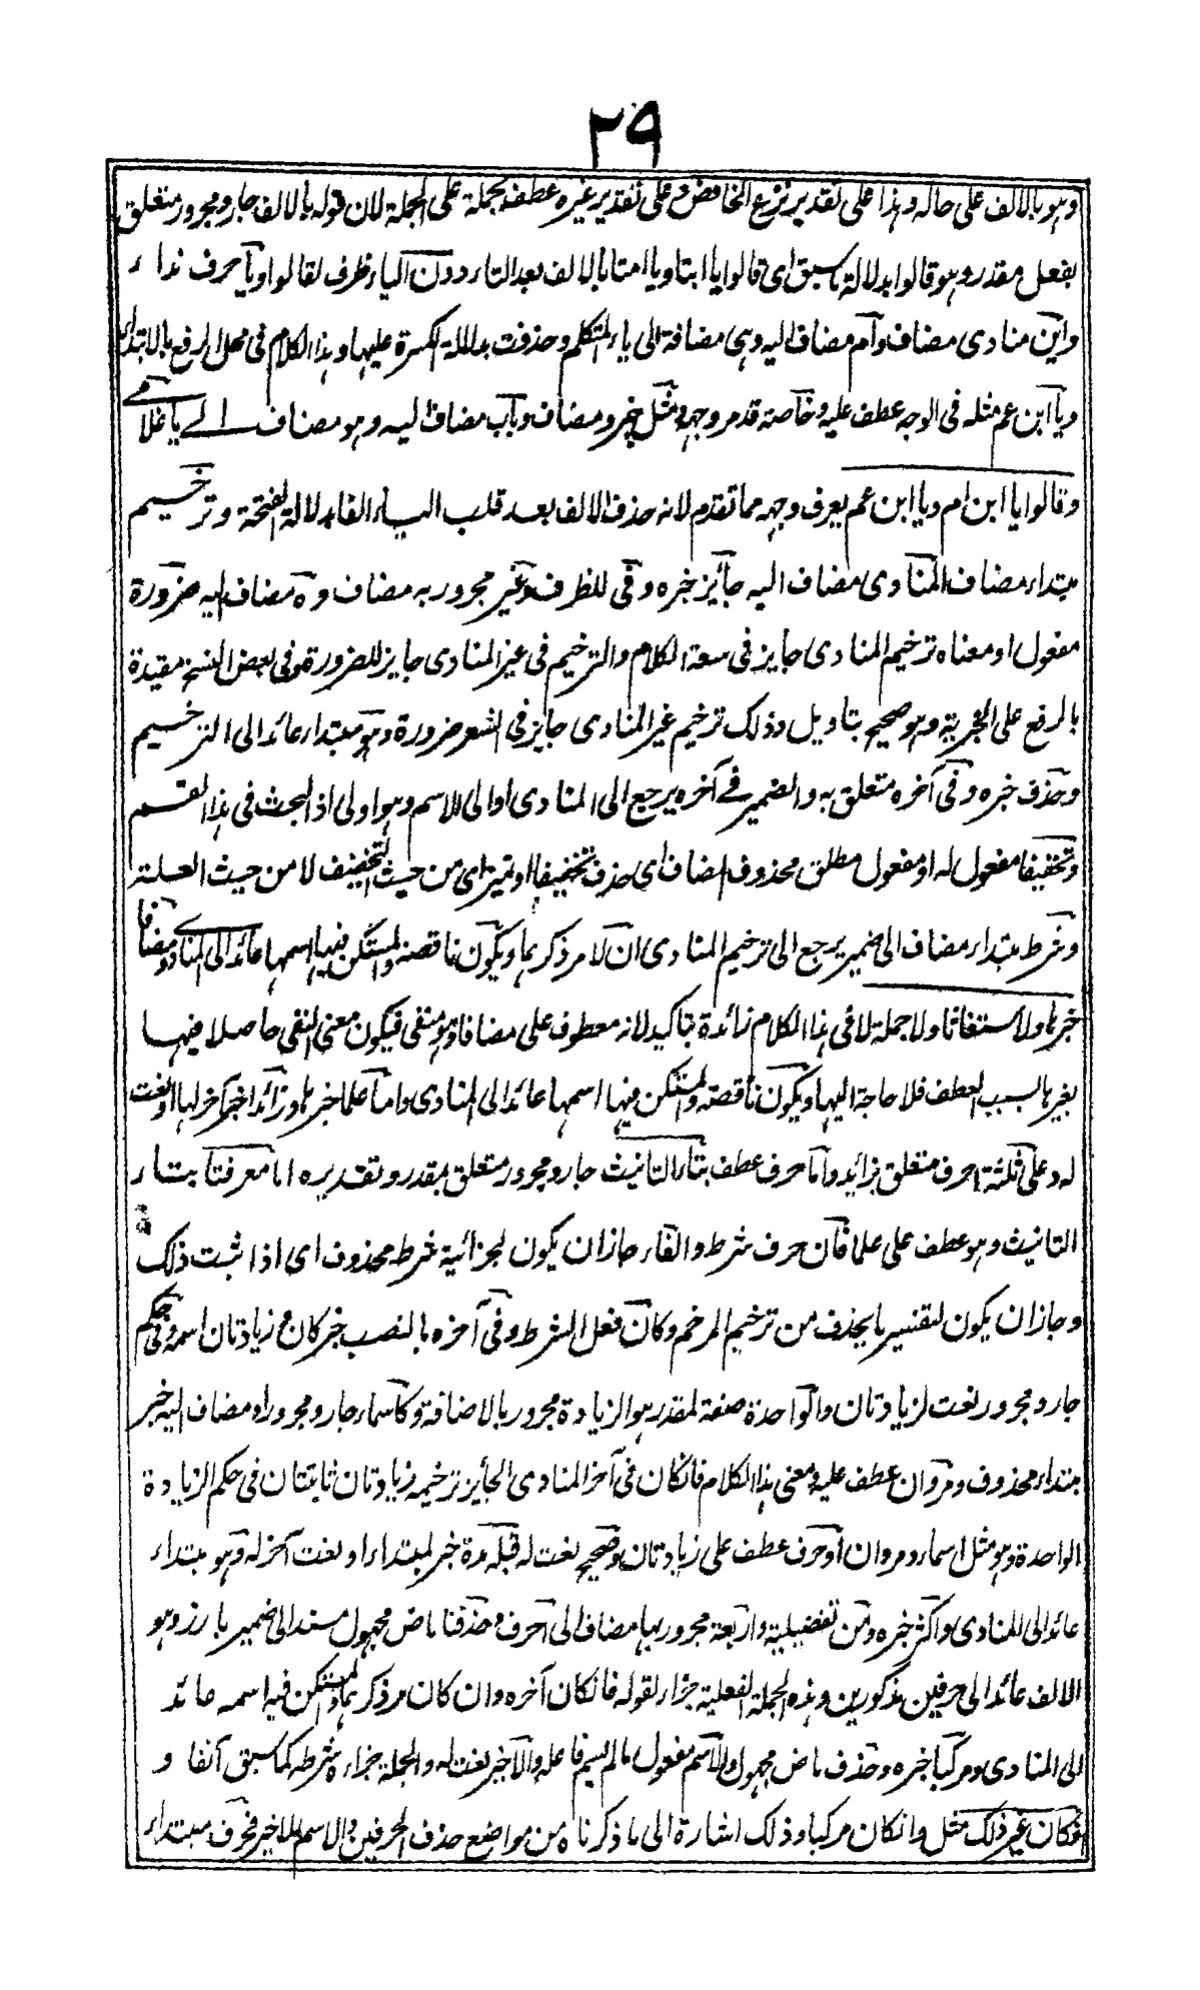 ٢٩
وهو بالالف على حاله وهذا على تقدير نزع الخافض وعلى تقدير غيره عطف جملة على الجملة لان قوله بالالف جار ومجرور متعلق
بفعل مقدر وهو قالوا بدلالة ما سبق اى قالوا يا ابتا ويا امتا بالالف بعد التاء ودون الياء ظرف لقالوا ويا حرف نداء
وابن منادى مضاف وام مضاف اليه وهى مضافة الى ياء المتكلم وحذفت بدلالة الكسرة عليها وهذا الكلام فى محل الرفع بالابتداء
ويا ابن عم مثله فى الوجه عطف عليه وخاصة قدمر وجهه ومثل جرو مضاف وباب مضاف اليه وهو مضاف الى يا غلامى
وقالوا يا ابن ام ويا ابن عم يعرف وجهه مما تقدم لانه حذف الالف بعد قلب الياء الفا بدلالة الفتحة وترخيم
مبتداء مضاف المنادى مضاف اليه جائز خبره وفى للظرف وغير مجرور به مضاف وه مضاف اليه ضرورة
مفعول او معناه ترخيم المنادى جايز فى سعة الكلام والترخيم فى غير المنادى جايز للضرورة وفى بعض النسخ مقيدة
بالرفع على الخبرية وهو صحيح بتاويل وذلك ترخيم غير المنادى جايز فى الشعر ضرورة وهو مبتداء عائد الى الترخيم
وحذف خبره وفى آخره متعلق به والضمير فى آخره يرجع الى المنادى او الى الاسم وهو اولى اذ البحث فى هذا القسم
وتخفيفا مفعول له او مفعول مطلق محذوف المضاف اى حذف تخفيفا او تميز اى من حيث التخفيف لا من حيث العلة
وشرط مبتداء مضاف الى ضمير يرجع الى ترخيم المنادى ان لا مر ذكرهما ويكون ناقصة والمستكن فيها اسمها عائد الى المنادى ومضافا
خبرها ولا مستغاثا ولا جملة لا فى هذا الكلام زائدة بتاكيد لانه معطوف على مضافا وهو منفى فيكون معنى النفى حاصلا فيها
بغيرها بسبب العطف فلا حاجة اليها ويكون ناقصة والمستكن فيها اسمها عائد الى المنادى واما علما خبرها وزائدا خبر آخر لها او نعت
له وعلى ثلثة احرف متعلق بزائد واما حرف عطف بتاء التانيث جار ومجرور متعلق بمقدر وتقديره اما معرفتا بتاء
التانيث وهو عطف على علما فان حرف شرط والفاء جازان يكون لجزائية شرط محذوف اى اذا ثبت ذلك
وجازان يكون لتفسير ما يحذف من ترخيم المرخم وكان فعل الشرط وفى آخره بالنصب خبر كان و زيادتان اسمه وفى حكم
جار ومجرور نعت لزيادتان والواحدة صفة لمقدر هو الزيادة مجرور بالاضافة وكاسماء جار ومجرور او مضاف اليه خبر
مبتداء محذوف ومروان عطف عليه ومعنى هذا الكلام فانكان فى آخر المنادى الجايز ترخيمه زيادتان ثابتتان فى حكم الزيادة
الواحدة وهو مثل اسماء ومروان او حرف عطف على زيادتان وصحيح نعت له قبله مدة خبر لمبتداء او نعت آخر له وهو مبتداء
عائد الى المنادى واكثر خبره ومن تفضيلية واربعة مجرور بها مضاف الى احرف وحذفتا ماض مجهول مسند الى ضمير بارز وهو
الالف عائد الى حرفين مذكورين وهذه الجملة الفعلية جزاء لقوله فانكان آخره وان كان مر ذكرهما والمستكن فيه اسمه عائد
الى المنادى ومركبا خبره وحذف ماض مجهول والاسم مفعول ما لم يسم فاعله والاخير نعت له والجملة جزاءه شرطه كما سبق آنفا و
فكان غير ذلك مثل وانكان مركبا وذلك اشارة الى ما ذكرناه من مواضع حذف الحرفين والاسم الاخير فحرف مبتداء